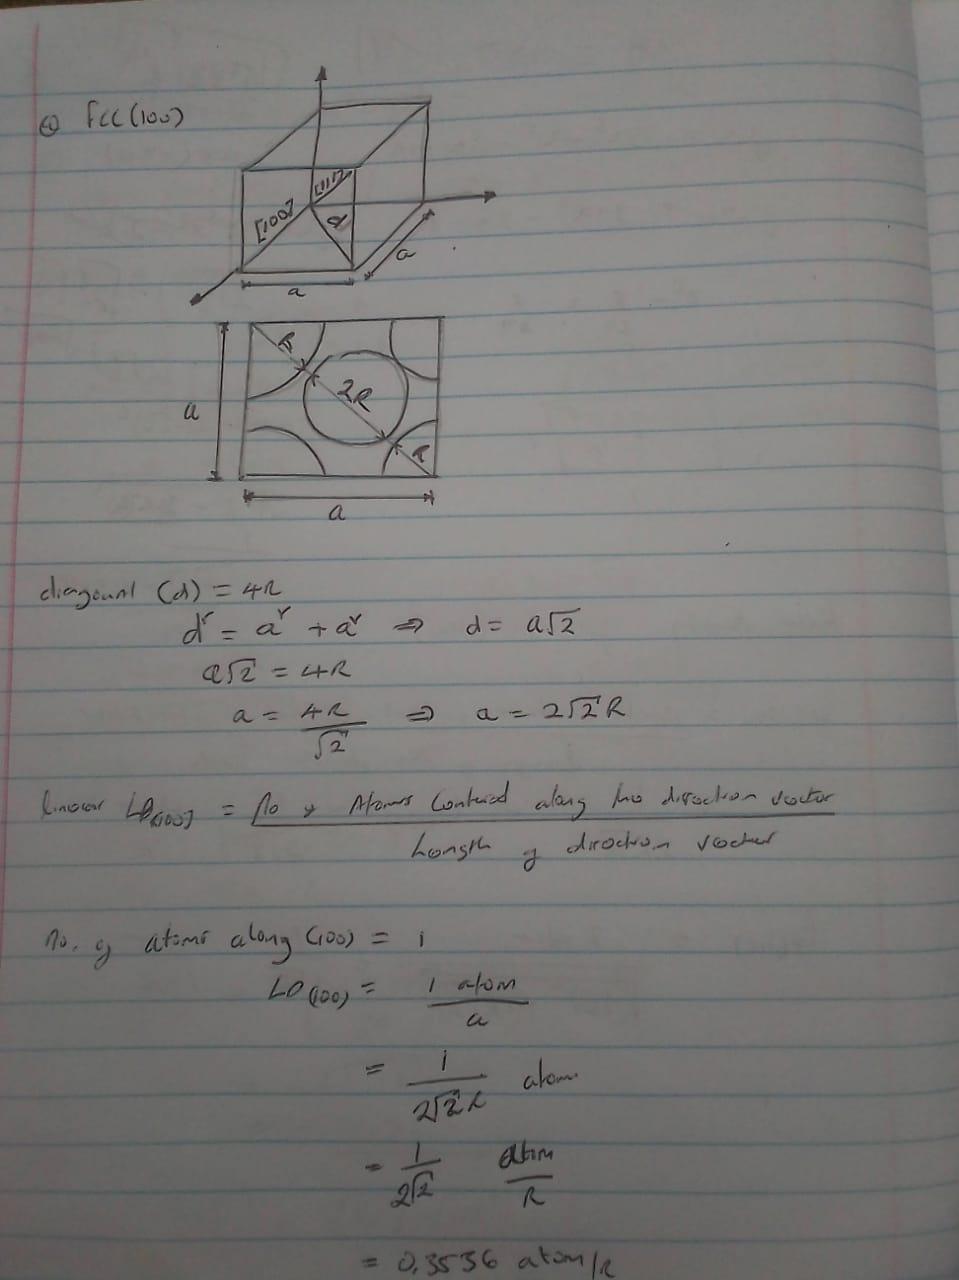 a) fcc (100)
[111]
[100]
d
a
a
R
2R
a
R
a
diagounl (d) = 4R
d² = a² + a² ⇒ d = a√2
a√2 = 4R
a = 4R/√2 ⇒ a = 2√2 R
linear LD[100] = No of Atoms Contained along the direction vector
Length of direction vector
No. of atoms along (100) = 1
LD(100) = 1 atom / a
= 1/2√2R atom
= 1/2√2 atom/R
= 0.3536 atom/R